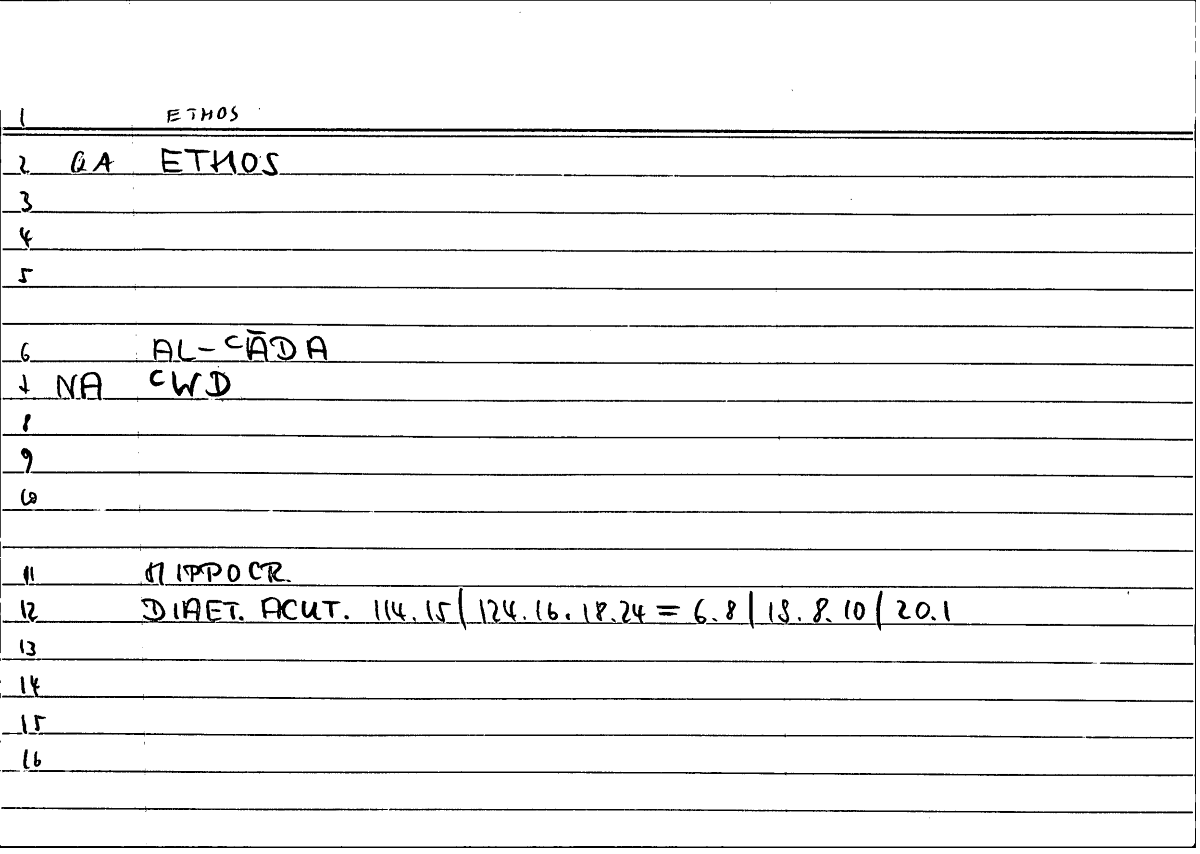 1 ETHOS
2 QA ETHOS
3
4
5
6 AL-ᶜĀDA
7 NA ᶜWD
8
9
10
11 HIPPOCR.
12 DIAET. ACUT. 114.15 | 124.16.18.24 = 6.8 | 18.8.10 | 20.1
13
14
15
16